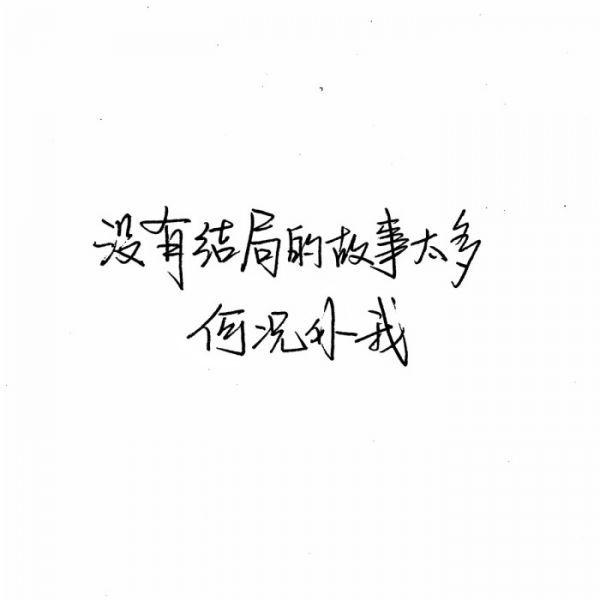 没有结局的故事太多
何况外我